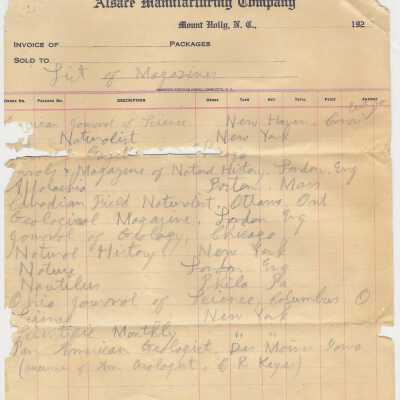 Alsace Manufacturing Company
Mount Holly, N. C., 192
INVOICE OF PACKAGES
SOLD TO
List of Magazines
DESCRIPTION
American Journal of Science New Haven, Conn
Naturalist, New York
Annals & Magazine of Natural History, London, Eng
Boston, Mass
Canadian Field Naturalist, Ottawa, Ont
Geological Magazine, London Eng
Journal of Geology, Chicago
Natural History New York
Nature London, Eng
Nautilus Phila Pa
Ohio Journal of Science, Columbus O
Science New York
Scientific Monthly " "
Pan American Geologist, Des Moines Iowa
Am Geologist, C R Keyes)